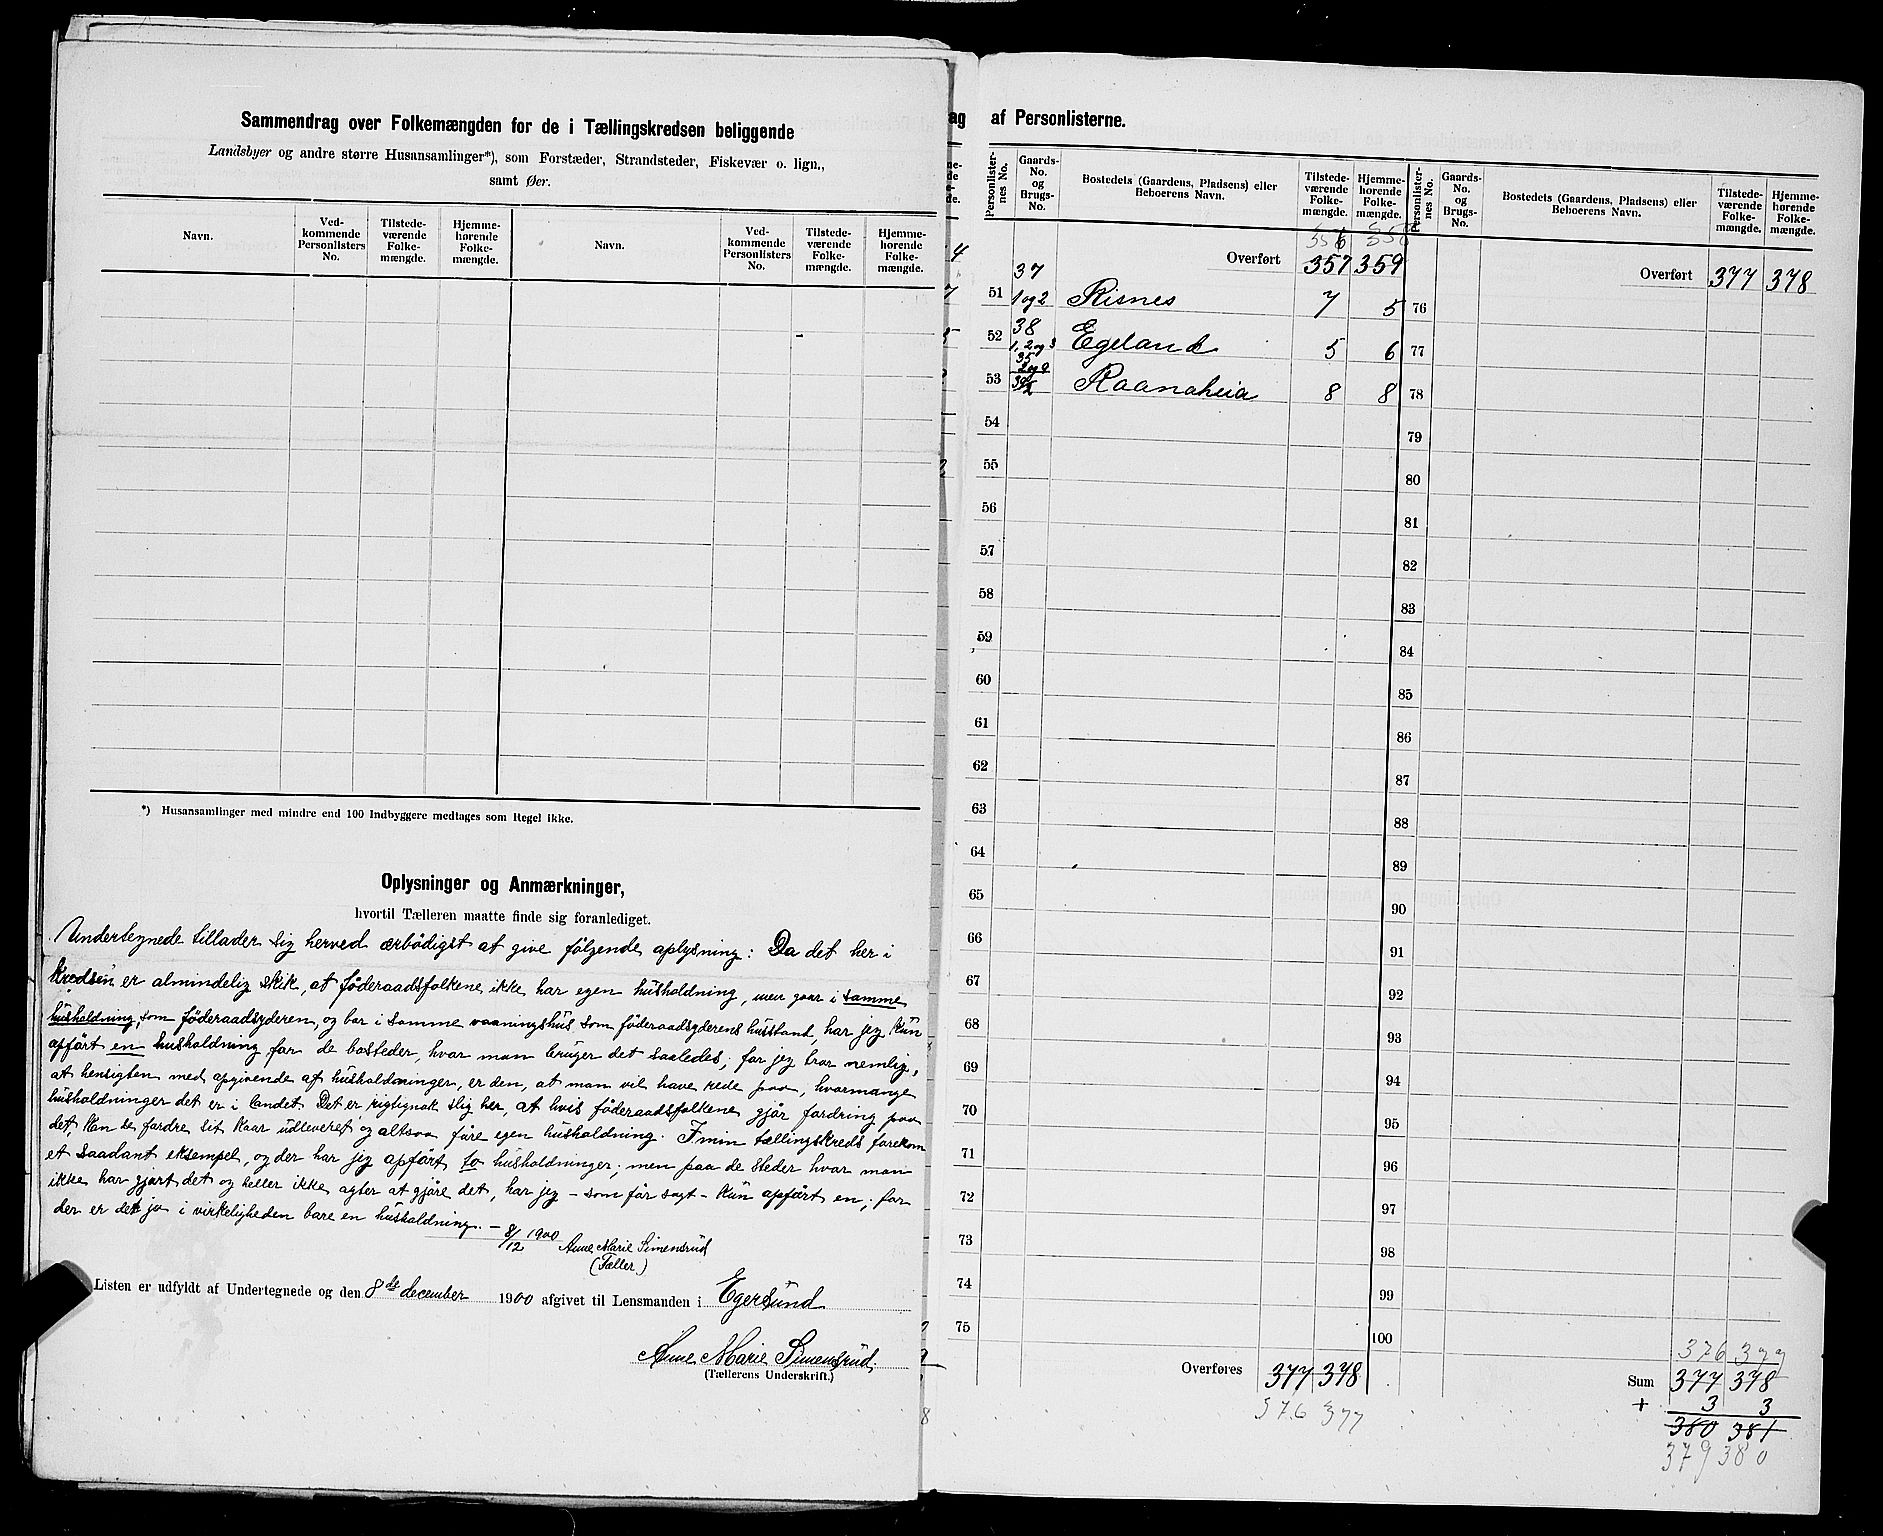 Sammendrag over Folkemængden for de i Tællingskredsen beliggende
Landsbyer og andre større Husansamlinger*), som Forstæder, Strandsteder, Fiskevær o. lign.,
samt Øer.
Navn.
Ved-
kommende
Personlisters
No.
Tilstede-
værende
Folke-
mængde.
Hjemme-
hørende
Folke-
mængde.
Navn.
Ved-
kommende
Personlisters
No.
Tilstede-
værende
Folke-
mængde.
Hjemme-
hørende
Folke-
mængde.
*) Husansamlinger med mindre end 100 Indbyggere medtages som Regel ikke.
Oplysninger og Anmærkninger,
hvortil Tælleren maatte finde sig foranlediget.
Undertegnede tillader sig herved ærbödigst at give fölgende oplysning: Da det her i
kredsen er almindelig skik, at föderaadsfolkene ikke har egen husholdning, men gaar i samme
husholdning, som föderaadsyderen, og bor i samme vaaningshus som föderaadsyderens husstand, har jeg kun
opfört en husholdning for de bosteder, hvor man bruger det saaledes; for jeg tror nemlig,
at hensigten med opgivende af husholdninger, er den, at man vil have rede paa, hvormange
husholdninger det er i landet. Det er rigtignok slig her, at hvis föderaadsfolkene gjör fordring paa
det, kan de fordre sit kaar udleveret og altsaa före egen husholdning. I min tællingskreds forekom
et saadant eksempel, og der har jeg opfört to husholdninger; men paa de steder hvor man
ikke har gjort det og heller ikke agter at gjöre det, har jeg – som för sagt – kun opfört en; for
der er det jo i virkeligheden bare en husholdning. –
8/12 1900 Anne Marie Simensrud
(Tæller)
Listen er udfyldt af Undertegnede og den 8de december 1900 afgivet til Lensmanden i Egersund
Anne Marie Simensrud.
(Tællerens Underskrift.)
ag af Personlisterne.
Personlister-
nes No.
Gaards-
No.
og
Brugs-
No.
Bostedets (Gaardens, Pladsens) eller
Beboerens Navn.
Tilstede-
værende
Folke-
mængde.
Hjemme-
hørende
Folke-
mængde.
Personlister-
nes No.
Gaards-
No.
og
Brugs-
No.
Bostedets (Gaardens, Pladsens) eller
Beboerens Navn.
Tilstede-
værende
Folke-
mængde.
Hjemme-
hørende
Folke-
mængde.
356 358
Overført 357 359
Overført 377 378
37
51 1 og 2 Risnes 7 5 76
38
52 1, 2 og 3 Egeland 5 6 77
35
53 Raanaheia 8 8 78
54 79
55 80
56 81
57 82
58 83
59 84
60 85
61 86
62 87
63 88
64 89
65 90
66 91
67 92
68 93
69 94
70 95
71 96
72 97
73 98
74 99
75 100
Overføres 377 378
376 377
376 377
Sum 377 378
+ 3 3
380 381
379 380